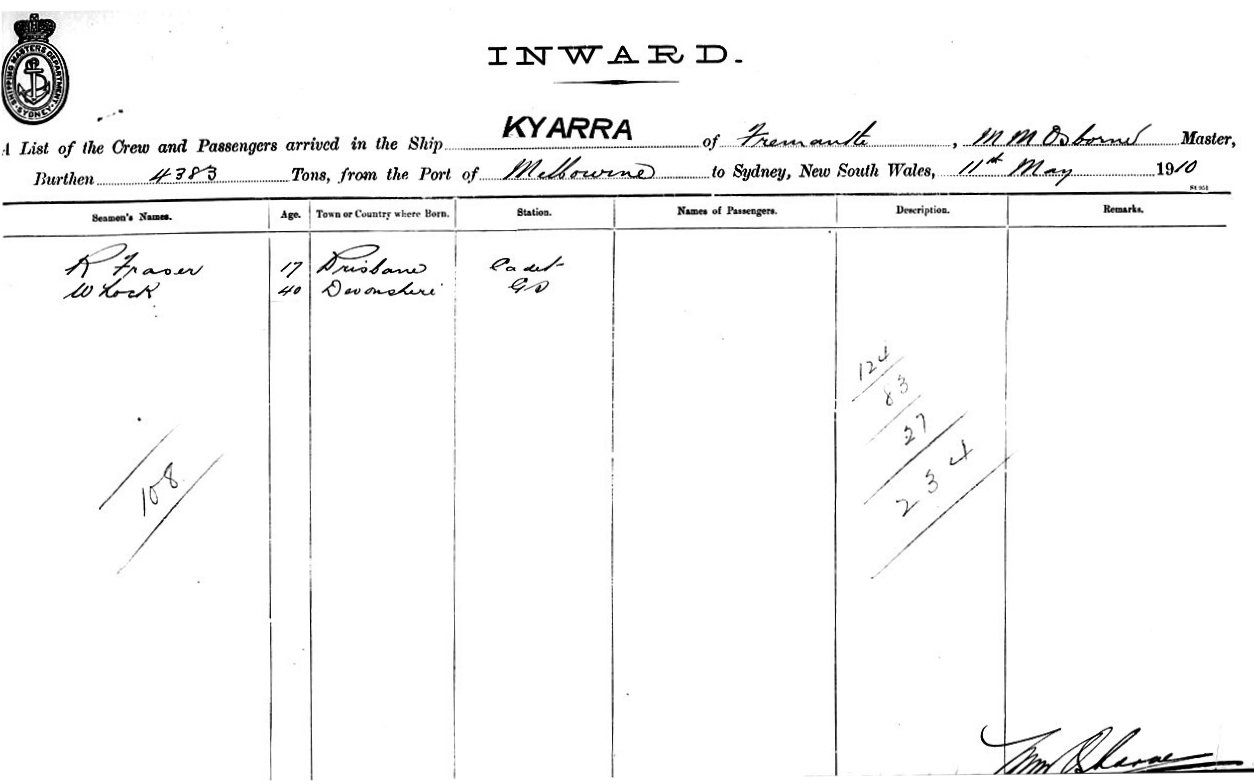 SHIPPING MASTERS DEPARTMENT SYDNEY
INWARD.
A List of the Crew and Passengers arrived in the Ship KYARRA of Fremantle, M M Osborne Master,
Burthen 4383 Tons, from the Port of Melbourne to Sydney, New South Wales, 11th May 1910
Seamen's Names. Age. Town or Country where Born. Station. Names of Passengers. Description. Remarks.
R Fraser 17 Brisbane Cadet
W Lock 40 Devonshire GS
124
83
27
234
108